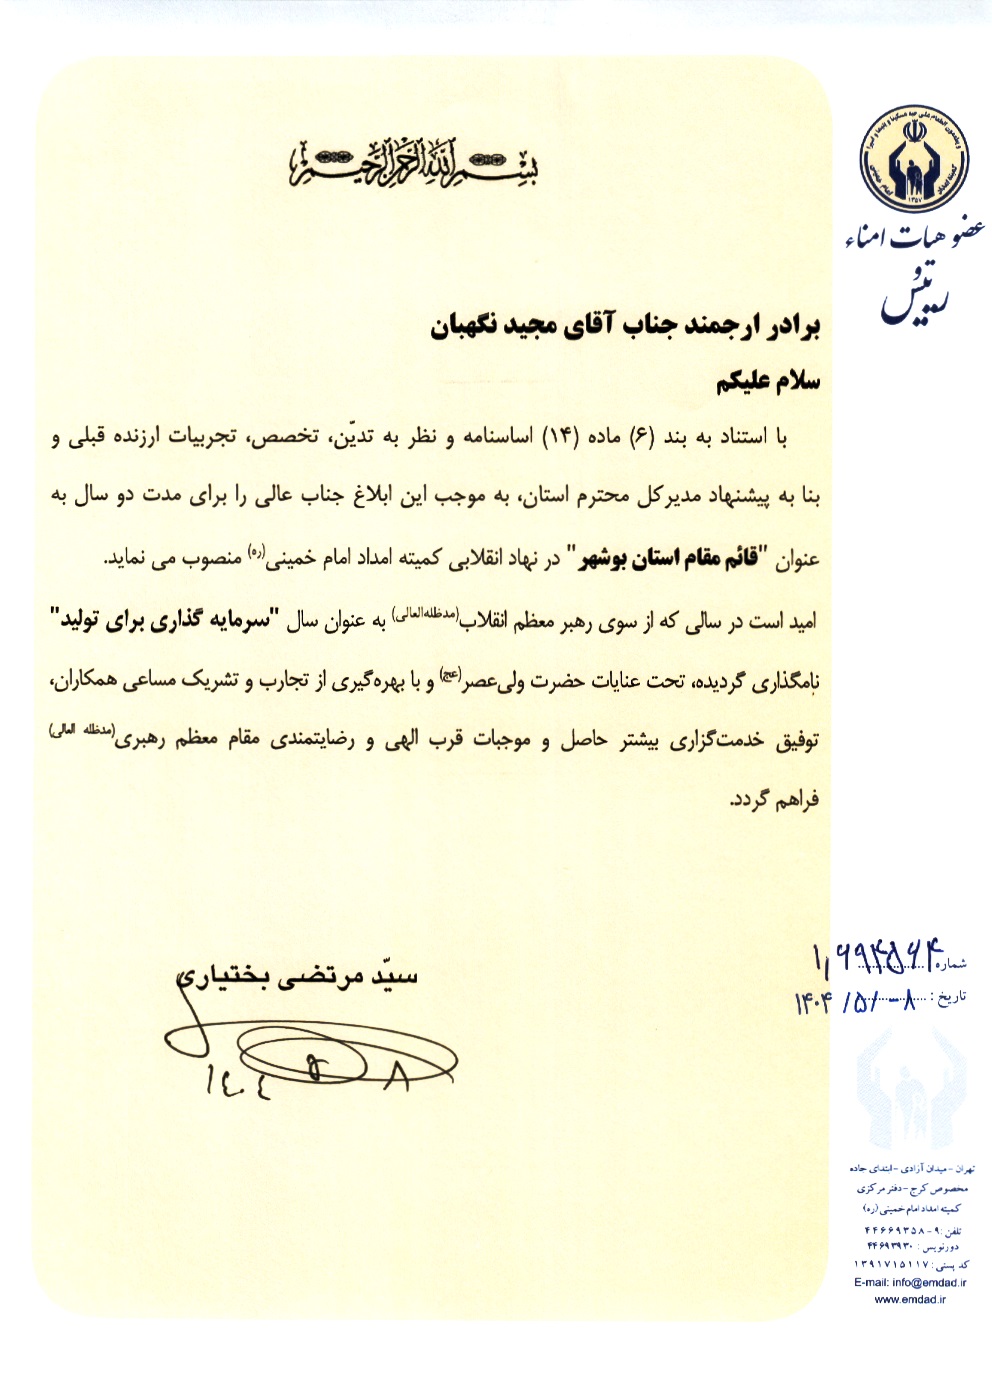 بسم الله الرحمن الرحیم
عضو هیات امناء
و
رئیس
برادر ارجمند جناب آقای مجید نگهبان
سلام علیکم
با استناد به بند (۶) ماده (۱۴) اساسنامه و نظر به تدیّن، تخصص، تجربیات ارزنده قبلی و
بنا به پیشنهاد مدیرکل محترم استان، به موجب این ابلاغ جناب عالی را برای مدت دو سال به
عنوان "قائم مقام استان بوشهر" در نهاد انقلابی کمیته امداد امام خمینی(ره) منصوب می نماید.
امید است در سالی که از سوی رهبر معظم انقلاب(مدظله‌العالی) به عنوان سال "سرمایه گذاری برای تولید"
نامگذاری گردیده، تحت عنایات حضرت ولی‌عصر(عج) و با بهره‌گیری از تجارب و تشریک مساعی همکاران،
توفیق خدمت‌گزاری بیشتر حاصل و موجبات قرب الهی و رضایتمندی مقام معظم رهبری(مدظله العالی)
فراهم گردد.
سیّد مرتضی بختیاری
۱۴۰۴ ۵ ۸
شماره
تاریخ : ۱۴۰۴/۵/-۸
تهران - میدان آزادی - ابتدای جاده
مخصوص کرج - دفتر مرکزی
کمیته امداد امام خمینی (ره)
تلفن : ۹-۴۴۶۶۹۳۵۸
دورنویس : ۴۴۶۹۳۹۳۰
کد پستی : ۱۳۹۱۷۱۵۱۱۷
E-mail: info@emdad.ir
www.emdad.ir